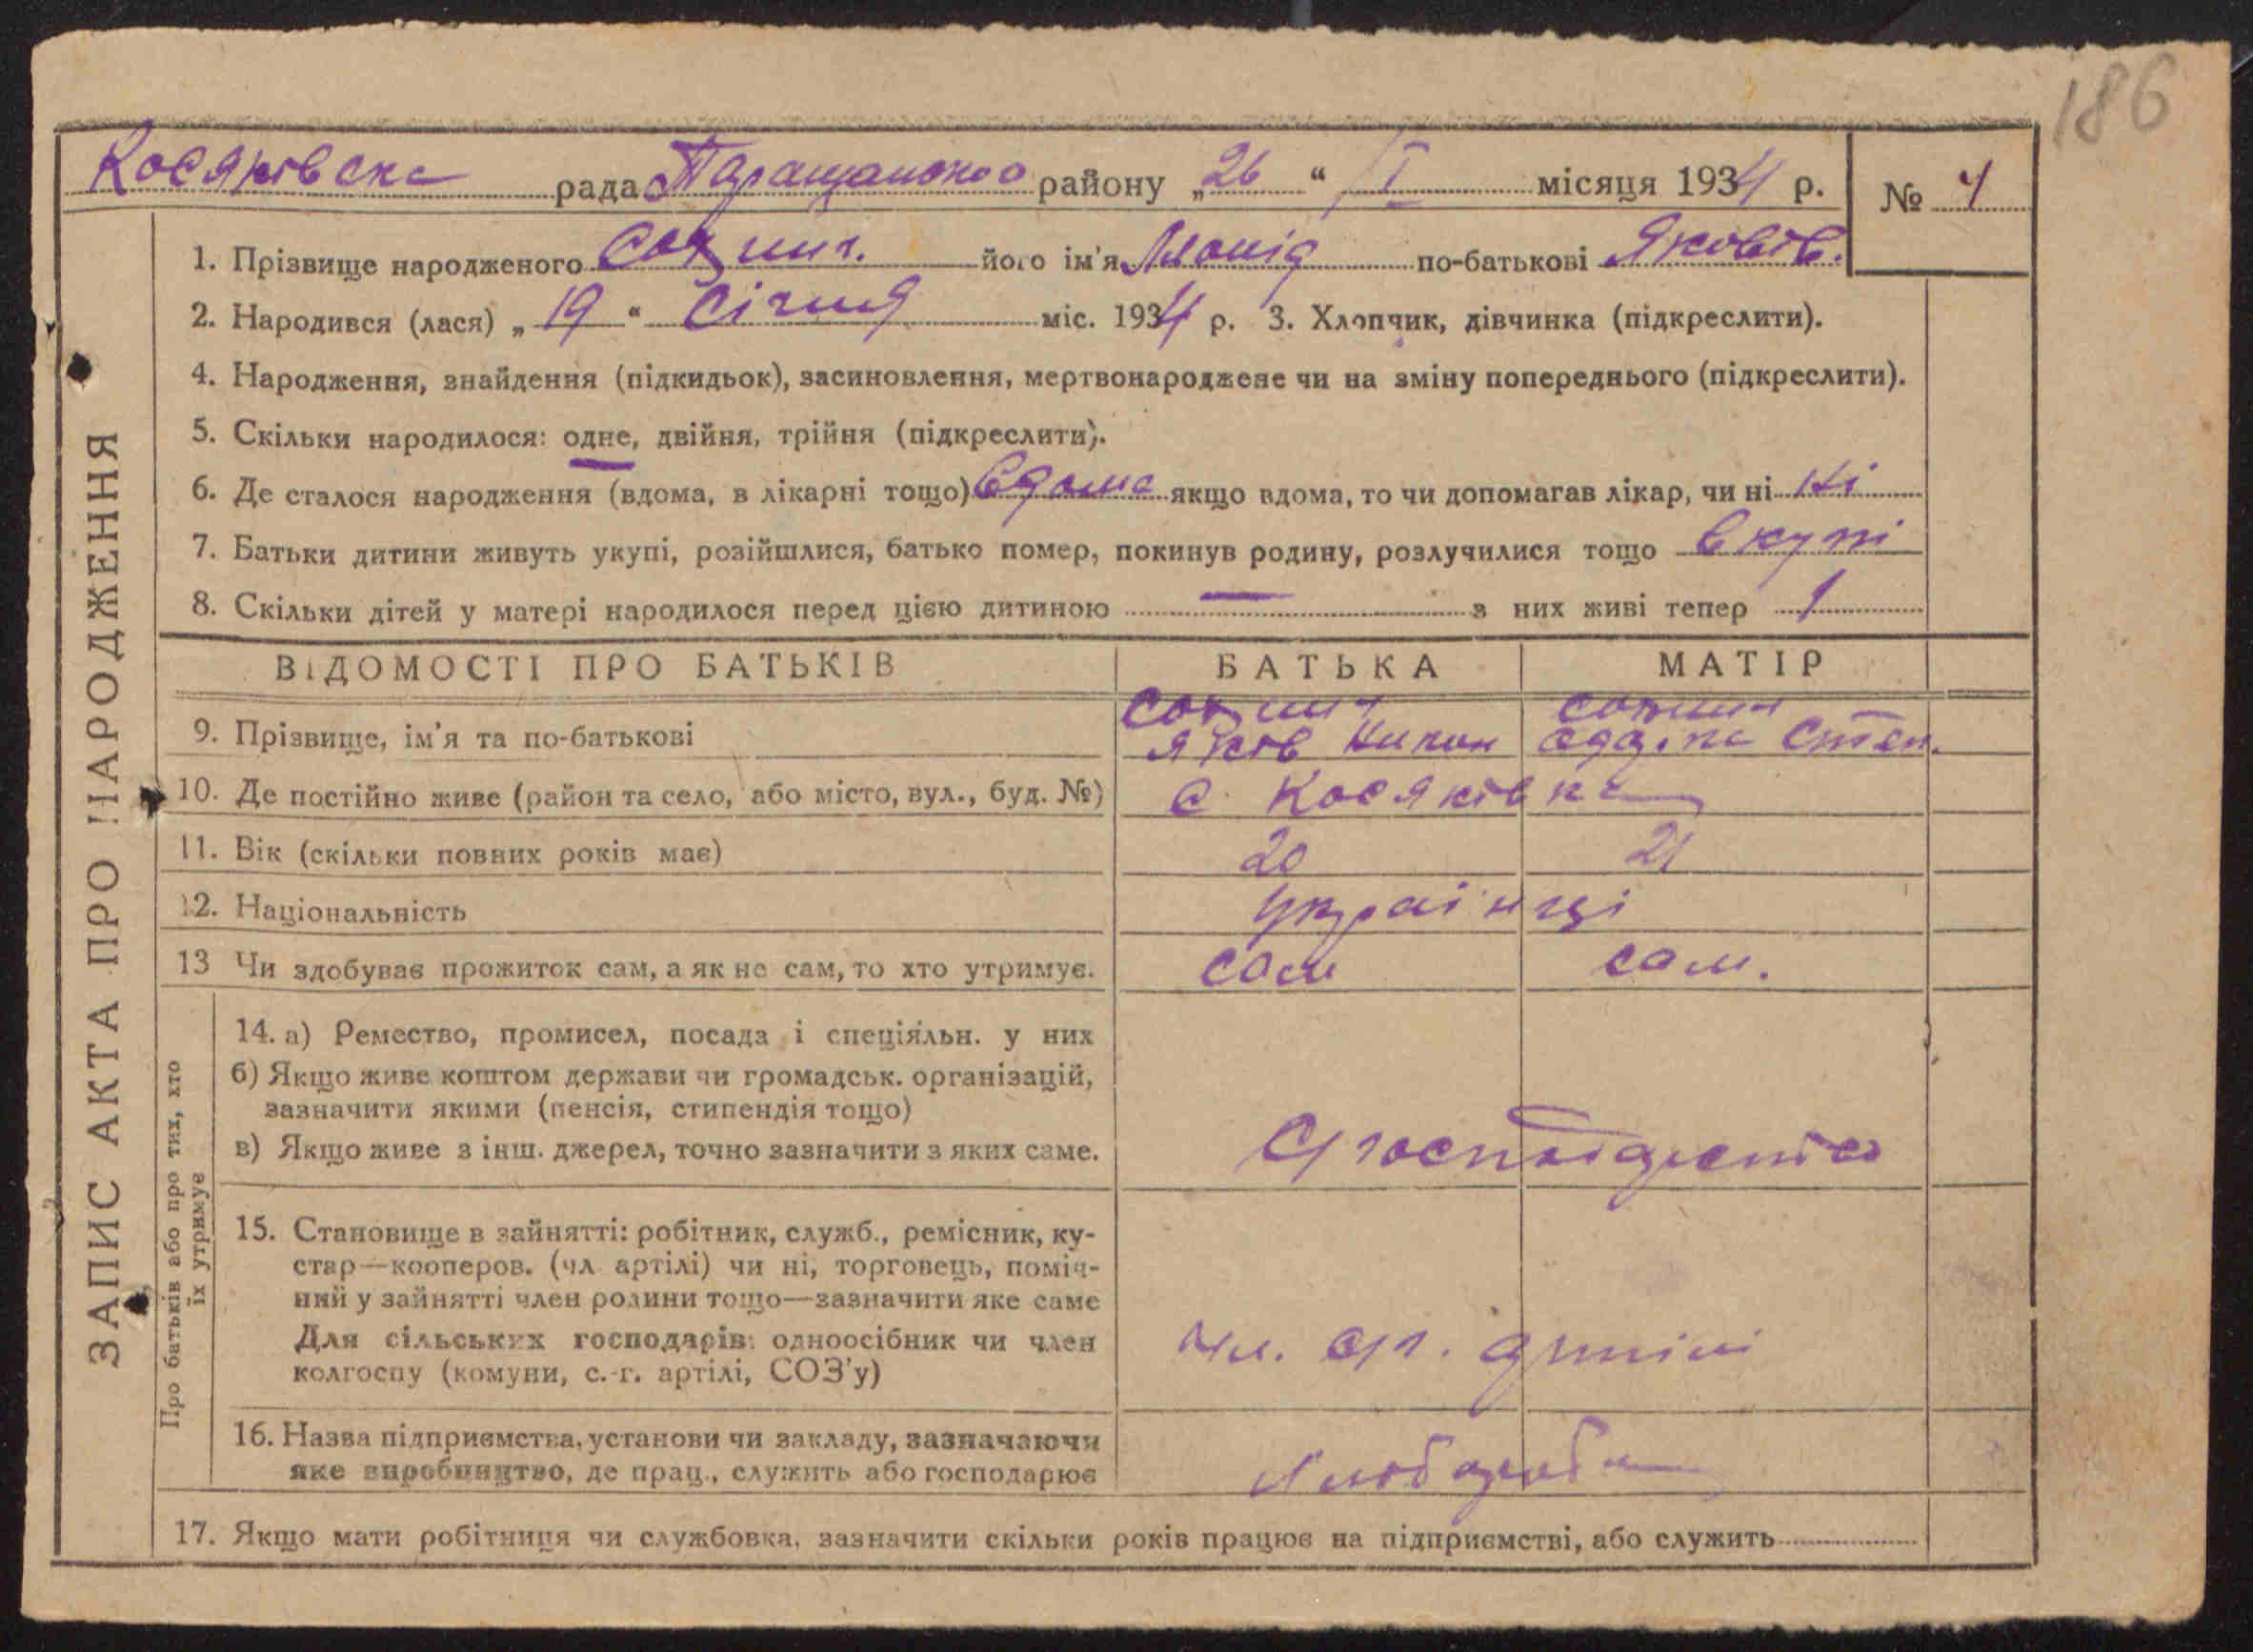 186
Косяківська рада Таращанського району „26“ I місяця 1934 р. № 4
1. Прізвище народженого його ім'я Леонід по-батькові Яковів.
2. Народився (лася) „19“ Січня міс. 1934 р. 3. Хлопчик, дівчинка (підкреслити).
4. Народження, знайдення (підкидьок), засиновлення, мертвонароджене чи на зміну попереднього (підкреслити).
5. Скільки народилося: одне, двійня, трійня (підкреслити).
6. Де сталося народження (вдома, в лікарні тощо) вдома якщо вдома, то чи допомагав лікар, чи ні ні
7. Батьки дитини живуть укупі, розійшлися, батько помер, покинув родину, розлучилися тощо вкупі
8. Скільки дітей у матері народилося перед цією дитиною — з них живі тепер 1
ВІДОМОСТІ ПРО БАТЬКІВ БАТЬКА МАТІР
9. Прізвище, ім'я та по-батькові Яків Степ.
10. Де постійно живе (район та село, або місто, вул., буд. №) с. Косяківка
11. Вік (скільки повних років має) 20 21
12. Національність українці
13 Чи здобуває прожиток сам, а як не сам, то хто утримує. сам сам.
14. а) Ремество, промисел, посада і спеціяльн. у них
б) Якщо живе коштом держави чи громадськ. організацій,
зазначити якими (пенсія, стипендія тощо)
в) Якщо живе з інш. джерел, точно зазначити з яких саме.
15. Становище в зайнятті: робітник, служб., ремісник, ку-
стар—кооперов. (чл артілі) чи ні, торговець, поміч-
ний у зайнятті член родини тощо—зазначити яке саме
Для сільських господарів: одноосібник чи член
колгоспу (комуни, с.-г. артілі, СОЗ'у)
чл. с/г. артілі
16. Назва підприємства, установи чи закладу, зазначаючи
яке виробництво, де прац., служить або господарює
17. Якщо мати робітниця чи службовка, зазначити скільки років працює на підприємстві, або служить
ЗАПИС АКТА ПРО НАРОДЖЕННЯ
Про батьків або про тих, хто
їх утримує